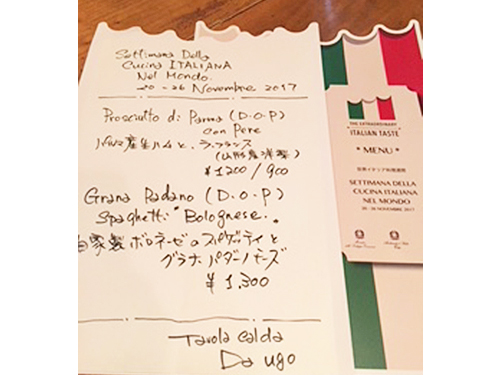 Settimana Della
Cucina ITALIANA
Nel Mondo.
20 - 26 Novembre 2017
Prosciutto di Parma (D.O.P)
con Pere
パルマ産生ハムと、ラ・フランス
(山形産洋梨)
¥1200/900
Grana Padano (D.O.P)
Spaghetti "Bolognese".
自家製ボロネーゼのスパゲッティと
グラナ・パダーノチーズ
¥1,300
Tavola Calda
Da ugo
THE EXTRAORDINARY
ITALIAN TASTE
* MENU *
世界イタリア料理週間
SETTIMANA DELLA
CUCINA ITALIANA
NEL MONDO
20-26 NOVEMBRE 2017